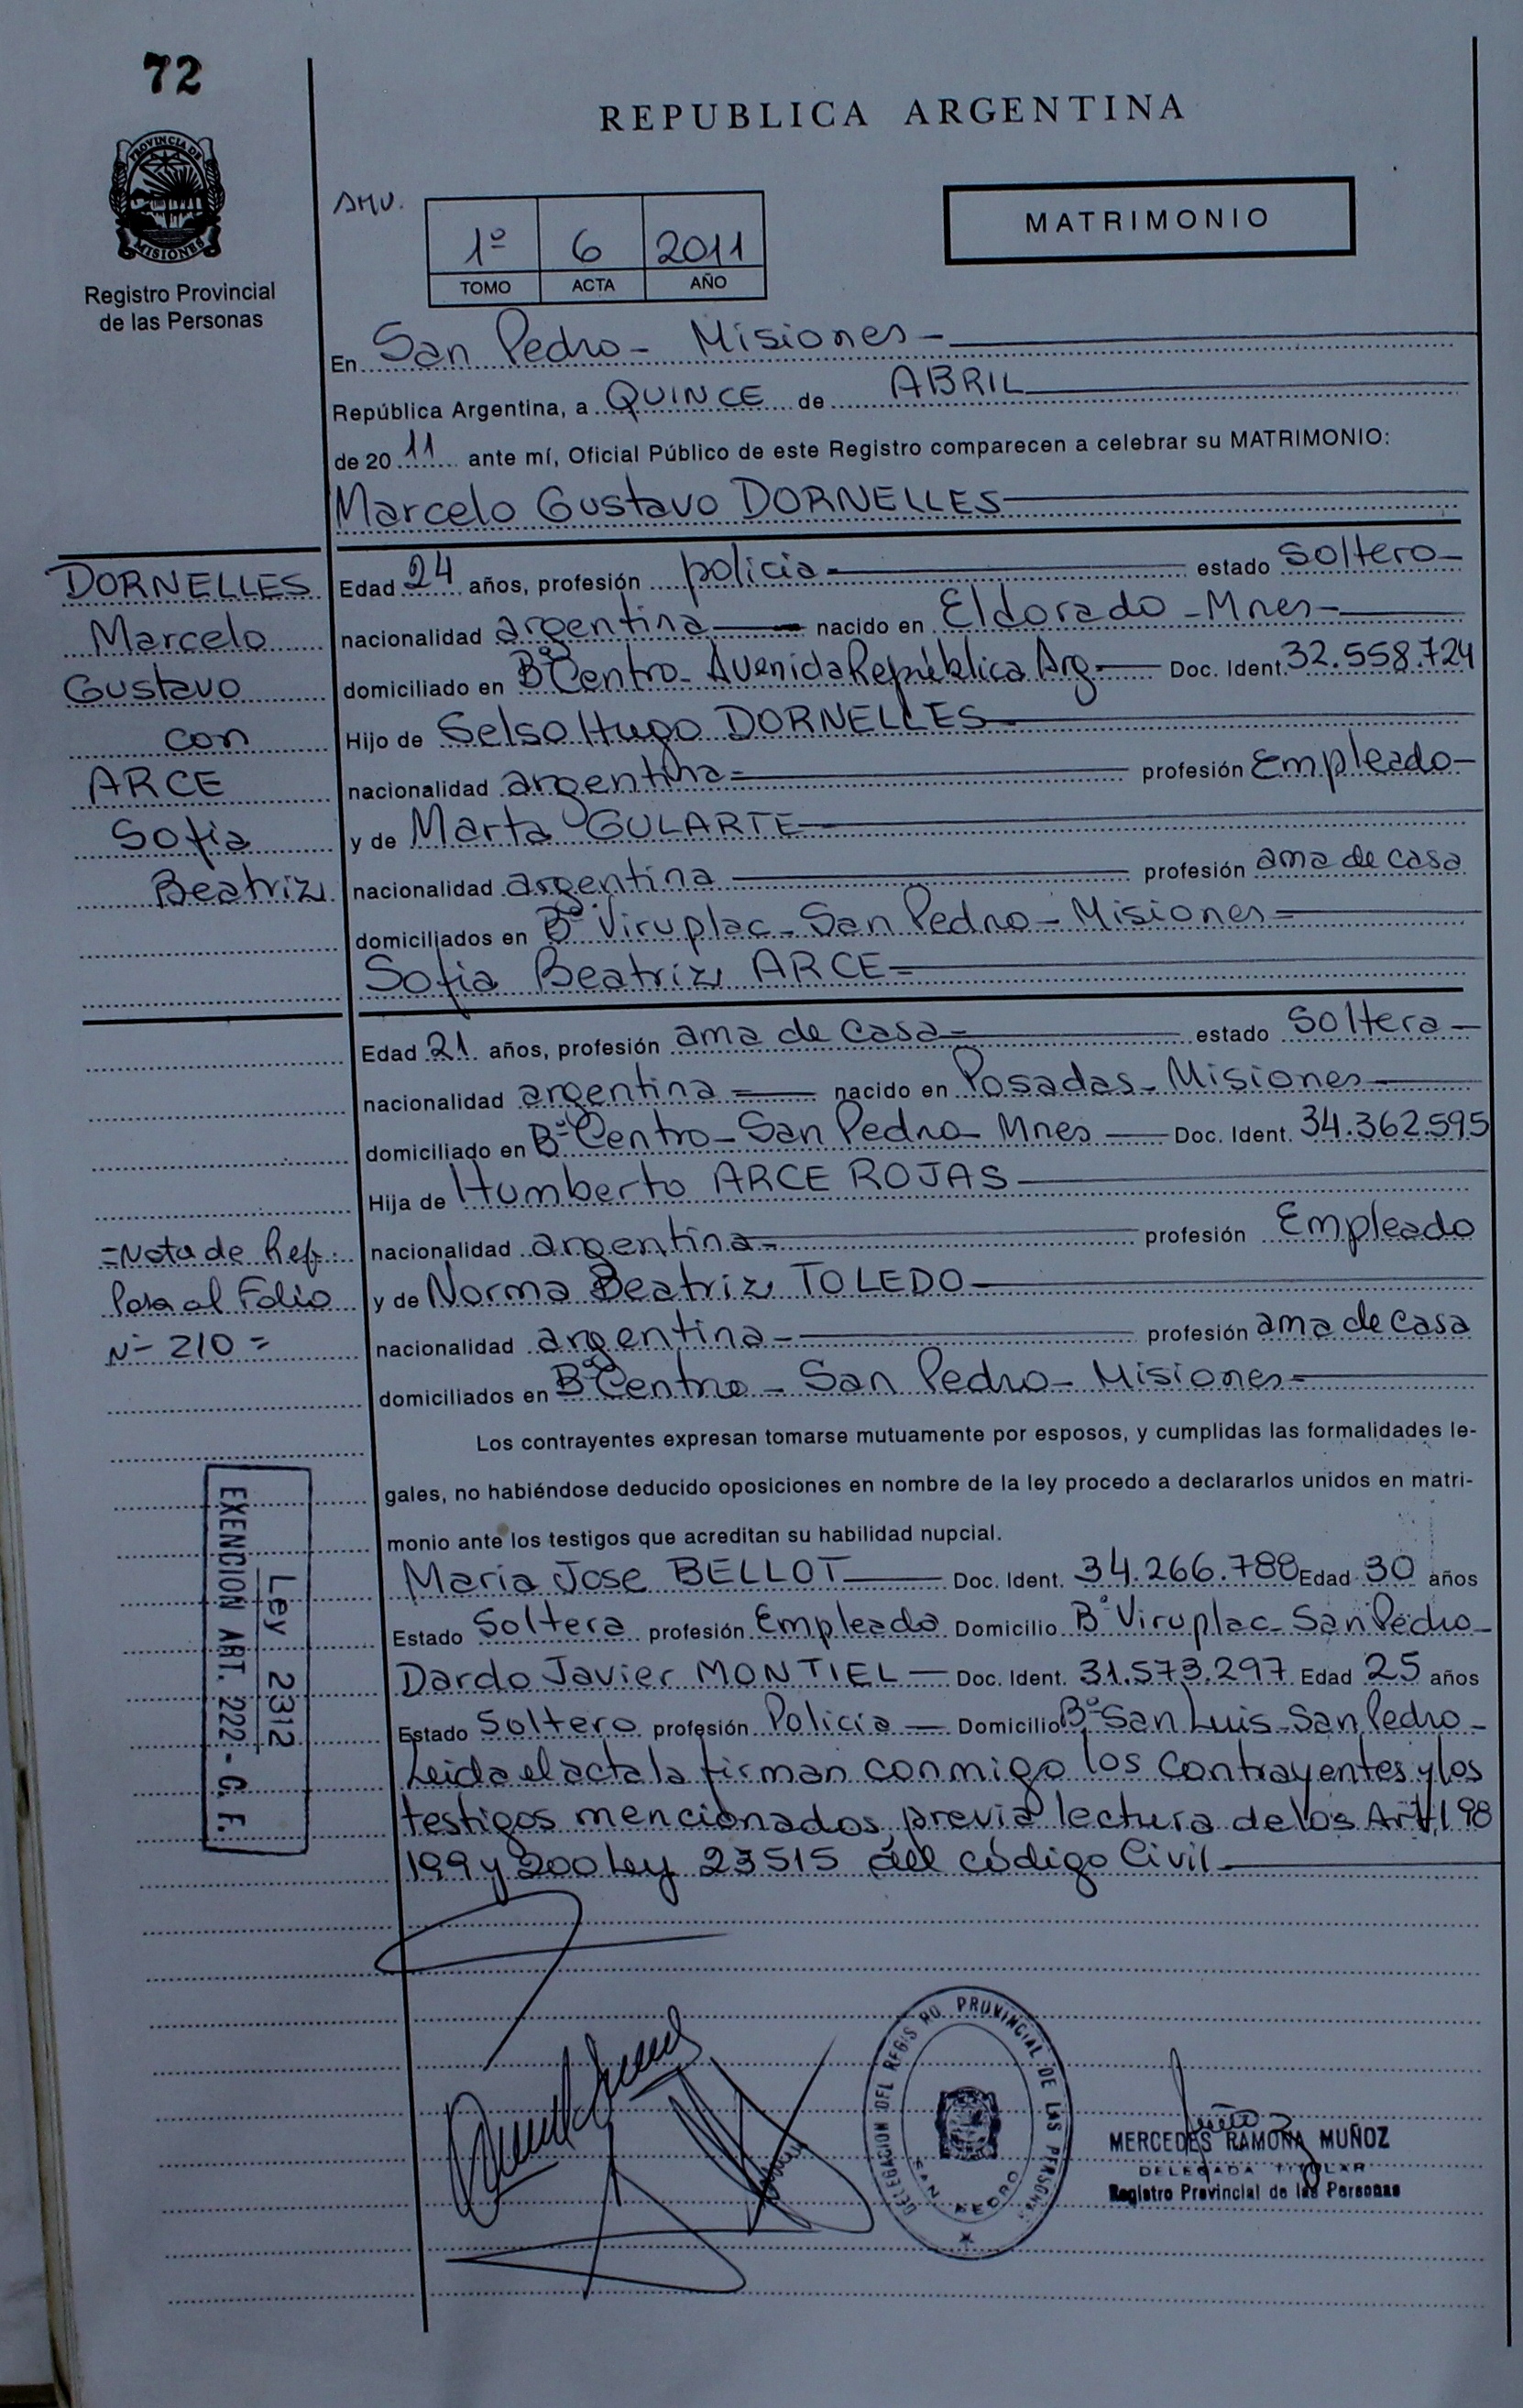 72
REPUBLICA ARGENTINA
PROVINCIA DE
MISIONES
Registro Provincial
de las Personas
1º 6 2011
TOMO ACTA AÑO
MATRIMONIO
En San Pedro - Misiones -
República Argentina, a QUINCE de ABRIL
de 20 11 ante mí, Oficial Público de este Registro comparecen a celebrar su MATRIMONIO:
Marcelo Gustavo DORNELLES
DORNELLES
Marcelo
Gustavo
con
ARCE
Sofia
Beatriz
Edad 24 años, profesión policia - estado Soltero -
nacionalidad argentina - nacido en Eldorado - Mnes -
domiciliado en Bº Centro - Avenida República Arg - Doc. Ident. 32.558.724
Hijo de Selso Hugo DORNELLES
nacionalidad argentina = profesión Empleado -
y de Marta GULARTE
nacionalidad argentina profesión ama de casa
domiciliados en Bº Viruplac - San Pedro - Misiones =
Sofia Beatriz ARCE =
Edad 21 años, profesión ama de casa = estado Soltera -
nacionalidad argentina = nacido en Posadas - Misiones
domiciliado en Bº Centro - San Pedro - Mnes Doc. Ident. 34.362.595
Hija de Humberto ARCE ROJAS
nacionalidad argentina = profesión Empleado
y de Norma Beatriz TOLEDO
nacionalidad argentina - profesión ama de casa
domiciliados en Bº Centro - San Pedro - Misiones =
=Nota de Ref.
Pasa al Folio
Nº 210 =
Los contrayentes expresan tomarse mutuamente por esposos, y cumplidas las formalidades le-
gales, no habiéndose deducido oposiciones en nombre de la ley procedo a declararlos unidos en matri-
monio ante los testigos que acreditan su habilidad nupcial.
Maria Jose BELLOT Doc. Ident. 34.266.788 Edad 30 años
Estado Soltera profesión Empleada Domicilio Bº Viruplac - San Pedro -
Dardo Javier MONTIEL - Doc. Ident. 31.573.297 Edad 25 años
Estado Soltero profesión Policia - Domicilio Bº San Luis - San Pedro -
Leida el acta la firman conmigo los contrayentes y los
testigos mencionados, previa lectura de los Art. 198
199 y 200 Ley 23515 del código Civil
Ley 2312
EXENCION ART. 222 - C. F.
DELEGACION DEL REGISTRO PROVINCIAL DE LAS PERSONAS
SAN PEDRO
MERCEDES RAMONA MUÑOZ
DELEGADA TITULAR
Registro Provincial de las Personas